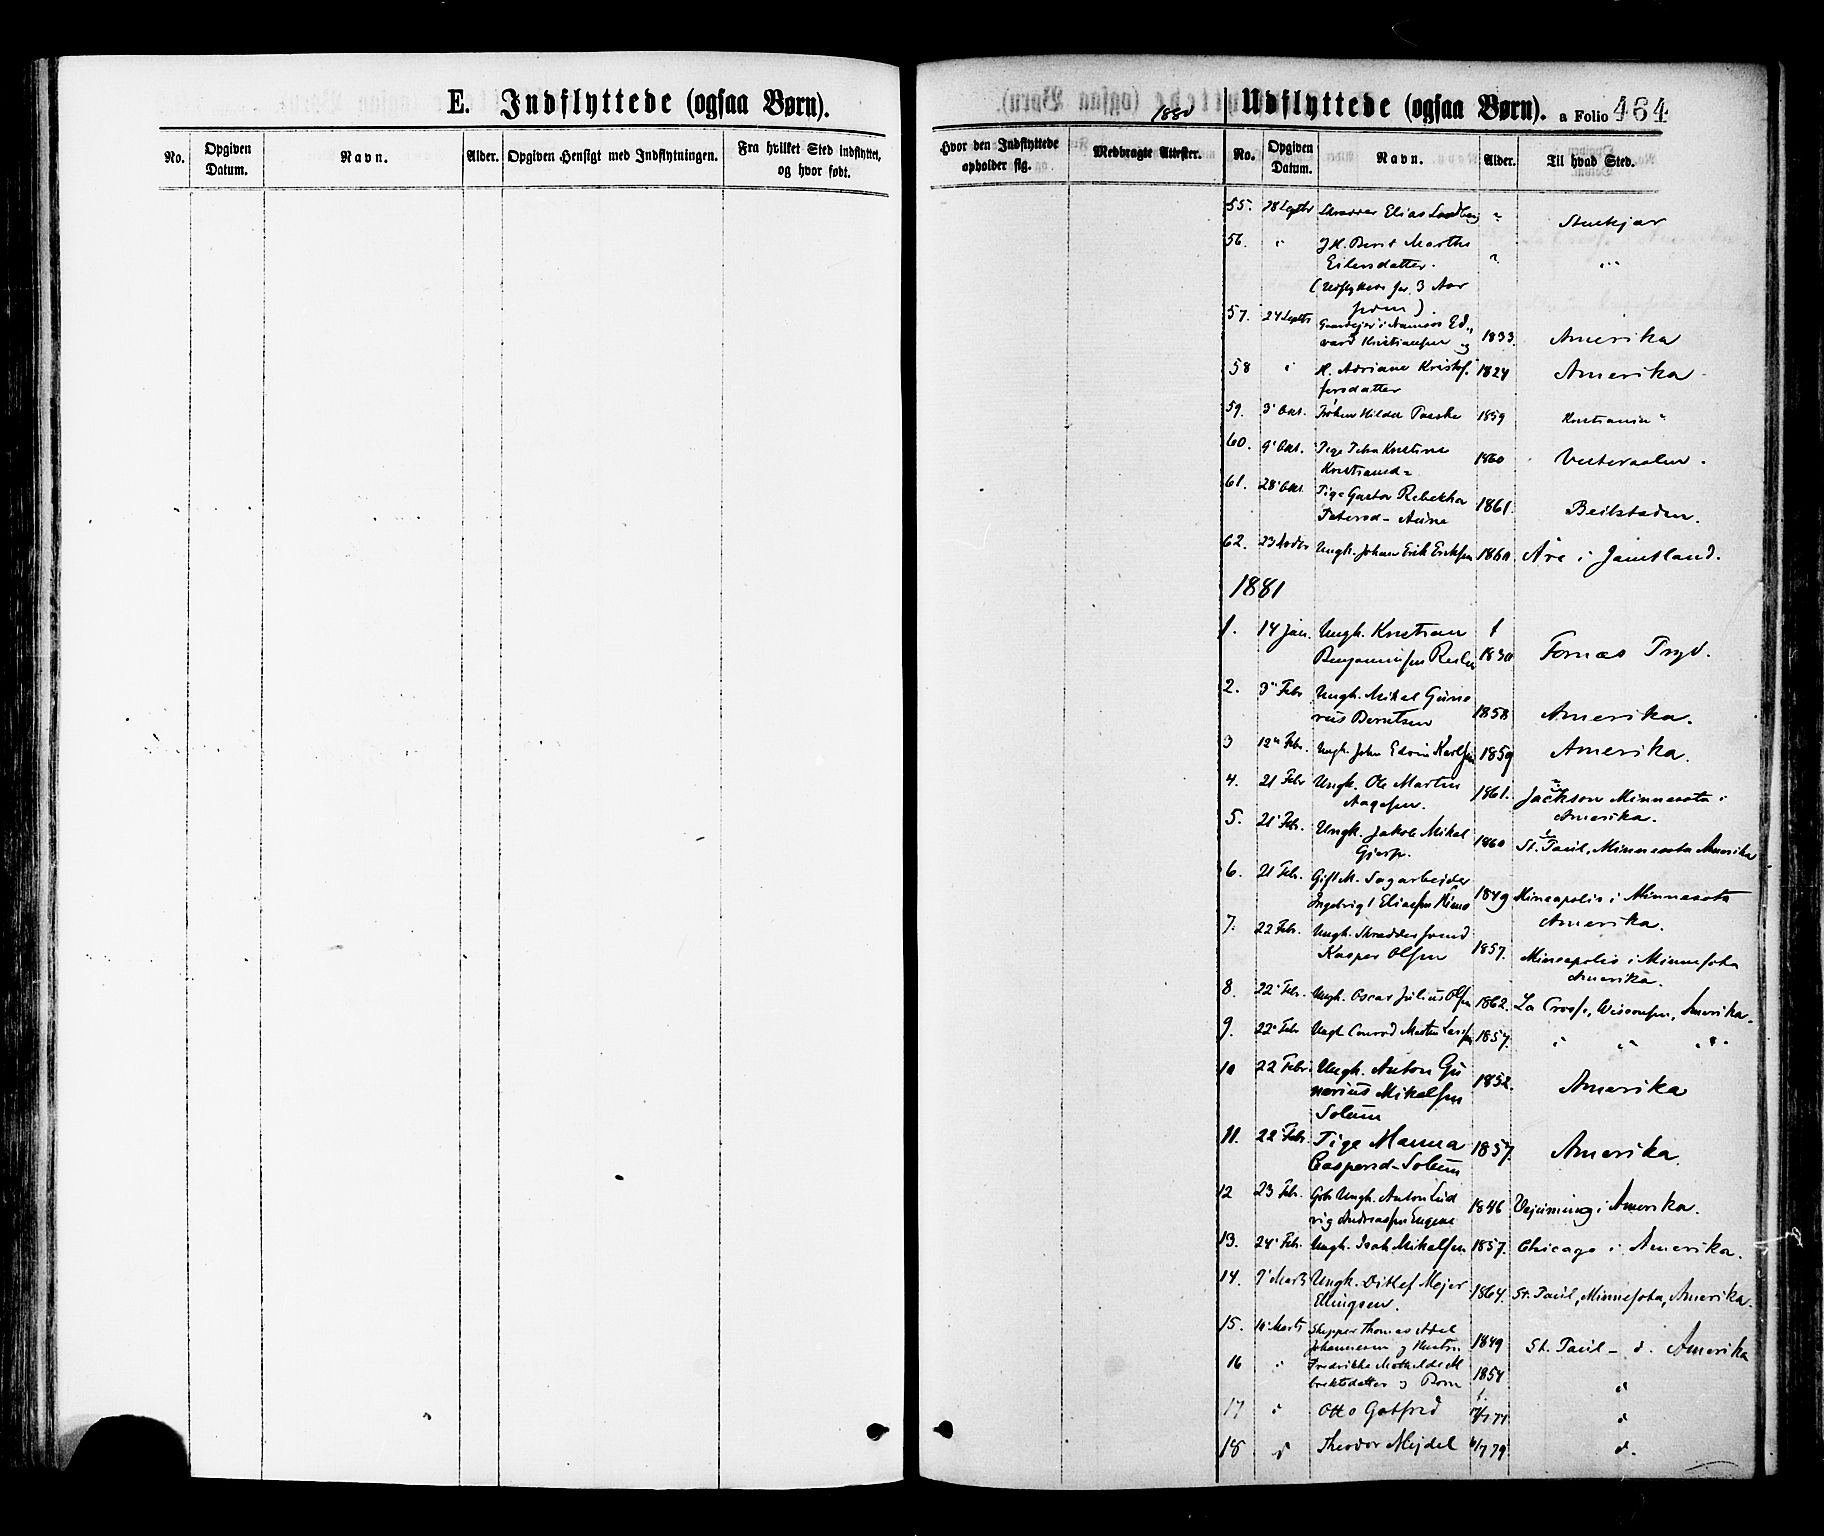 E. Indflyttede (ogsaa Børn).
No.
Opgiven Datum.
Navn.
Alder.
Opgiven Hensigt med Indflytningen.
Fra hvilket Sted indflyttet, og hvor født.
1880
Udflyttede (ogsaa Børn). a Folio 464
Hvor den Indflyttede opholder sig.
Medbragte Attester.
No.
Opgiven Datum.
Navn.
Alder.
Til hvad Sted.
55. 28 Septbr Elias "
56. " Berit Martha
Eilersdatter. " " "
3 Aar
siden).
57. 24 Septbr Gaardejer i Namsos Ed-
vard Kristiansen og 1833. Amerika
58 " H. Adriane Kristof-
fersdatter 1824 Amerika
59. 3' Okt. Frøken Hilda 1859 Kristiania
60. 9' Okt. Pige Petra Kristine
Kristiansd= 1860 Vesteraalen.
61. 28' Okt. Pige Rebekka
Petersd- Aune 1861. Beitstaden.
62. 23 Novbr Ungk. Johan Erik Eriksen 1860 Åre i Jamtland.
1881
1. 14 Jan. Ungk. Kristian
Benjaminsen 1830 Fornæs
2. 3' Febr Ungk. Mikal Gune-
rius Berntsen 1858 Amerika.
3 12" Febr. Ungk. John Edvin Karlsen 1859 Amerika.
4. 21 Febr Ungk. Ole Martin
Aagesen. 1861. Jackson Minnesota i
Amerika.
5. 21' Febr. Ungk. Jakob Mikal
1860 St. Paul, Minnesota Amerika
6. 21 Febr. Gift M. Sagarbejder
Ingebrigt Eliasen 1849 Mineapolis i Minnesota
Amerika.
7. 22 Febr. Ungk. Skrædder
Kasper Olsen 1857. Mineapolis i Minnesota
Amerika.
8. 22' Febr. Ungk. Oscar Julius Olsen 1862. La Crosse, Wisconsin, Amerika.
9. 22' Febr Ungk Conrad Martin 1857. " " " "
10 22 Febr. Ungk. Anton Gu-
nerius Mikalsen
Solum 1852. Amerika
11. 22' Febr. Pige Manna
Caspersd- Solum 1857. Amerika.
12 23 Febr. Ungk. Anton Lud-
vig Andreassen 1846 i Amerika.
13. 24' Febr. Ungk. Isak Mikalsen 1857. Chicago i Amerika.
14. 7' Marts Ungk. Ditlef Mejer
Ellingsen. 1864. St. Paul, Minnesota, Amerika.
15. 10' Marts Skipper Thomas
Johannesen og Hustru 1849 St. Paul - d. Amerika
16 " Fredrikke Mathilde
og Børn 1854 d
17 d Otto Gotfred d
18 d Theodor Mejdel d.